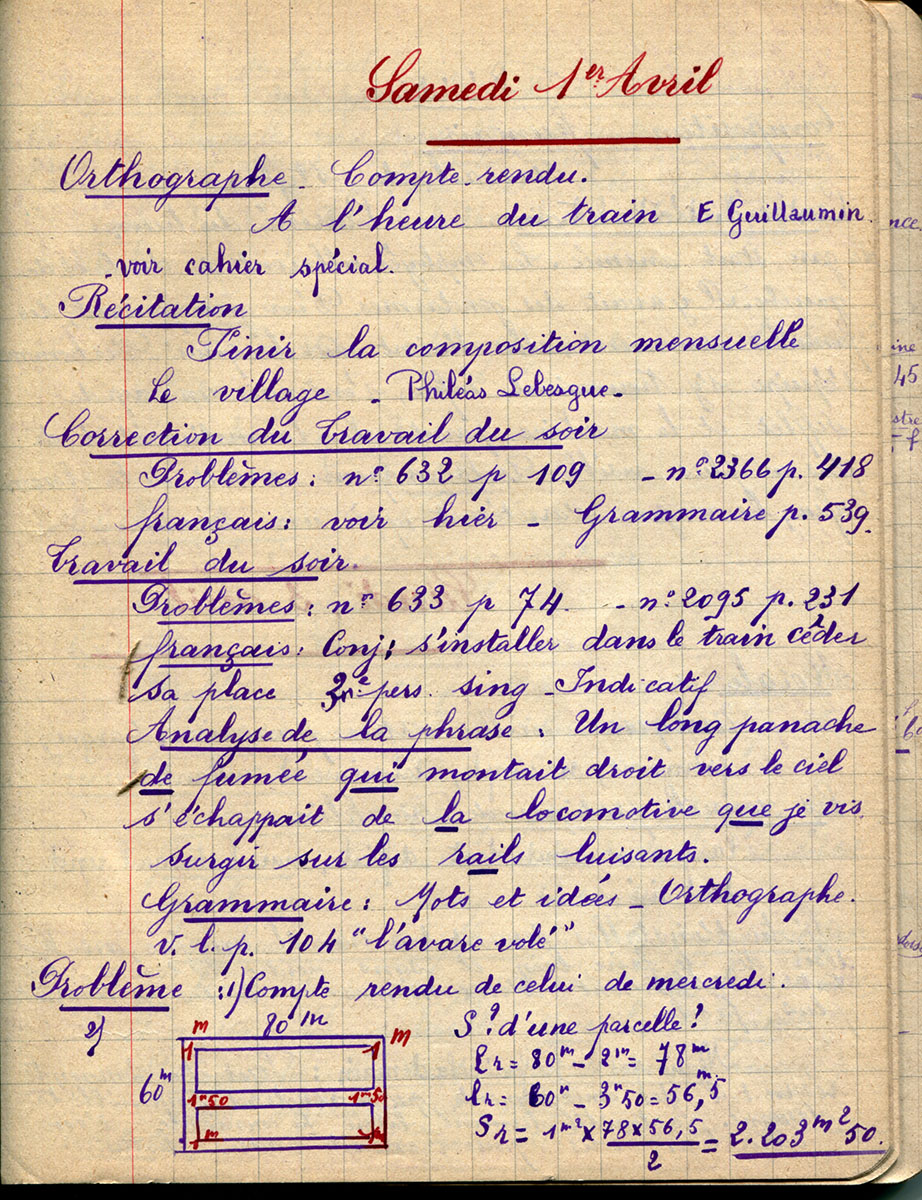 Samedi 1er Avril
Orthographe - Compte-rendu.
A l'heure du train E Guillaumin.
-voir cahier spécial.
Récitation
Finir la composition mensuelle
Le village - Philéas Lebesgue-
Correction du travail du soir
Problèmes : no 632 p 109 - no 2366 p. 418
français : voir hier - Grammaire p. 539.
Travail du soir.
Problèmes : no 633 p 74. - no 2095 p. 231
français : Conj : s'installer dans le train céder
sa place pers. sing - Indicatif
Analyse de la phrase : Un long panache
de fumée qui montait droit vers le ciel
s'échappait de la locomotive que je vis
surgir sur les rails luisants.
Grammaire : Mots et idées - Orthographe.
v. l. p. 104 "l'avare volé"
Problème : 1) Compte rendu de celui de mercredi.
2)
m 80 m m
1 1
60 m
1m50 1m50
m
S? d'une parcelle ?
Lr = 80m - 2m = 78m
lr = 60m - 3m50 = 56,5 m
Sr = 1m2 x 78 x 56,5 / 2 = 2.203 m2 50.
nce
ine
45
stre